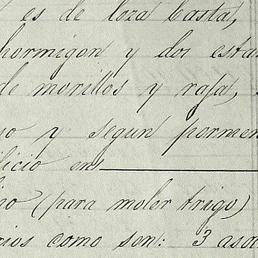 es de loza basta,
hormigon y dos esta
de morillos y raja,
y segun pormen
licio en
no (para moler trigo)
rios como son: 3 aso